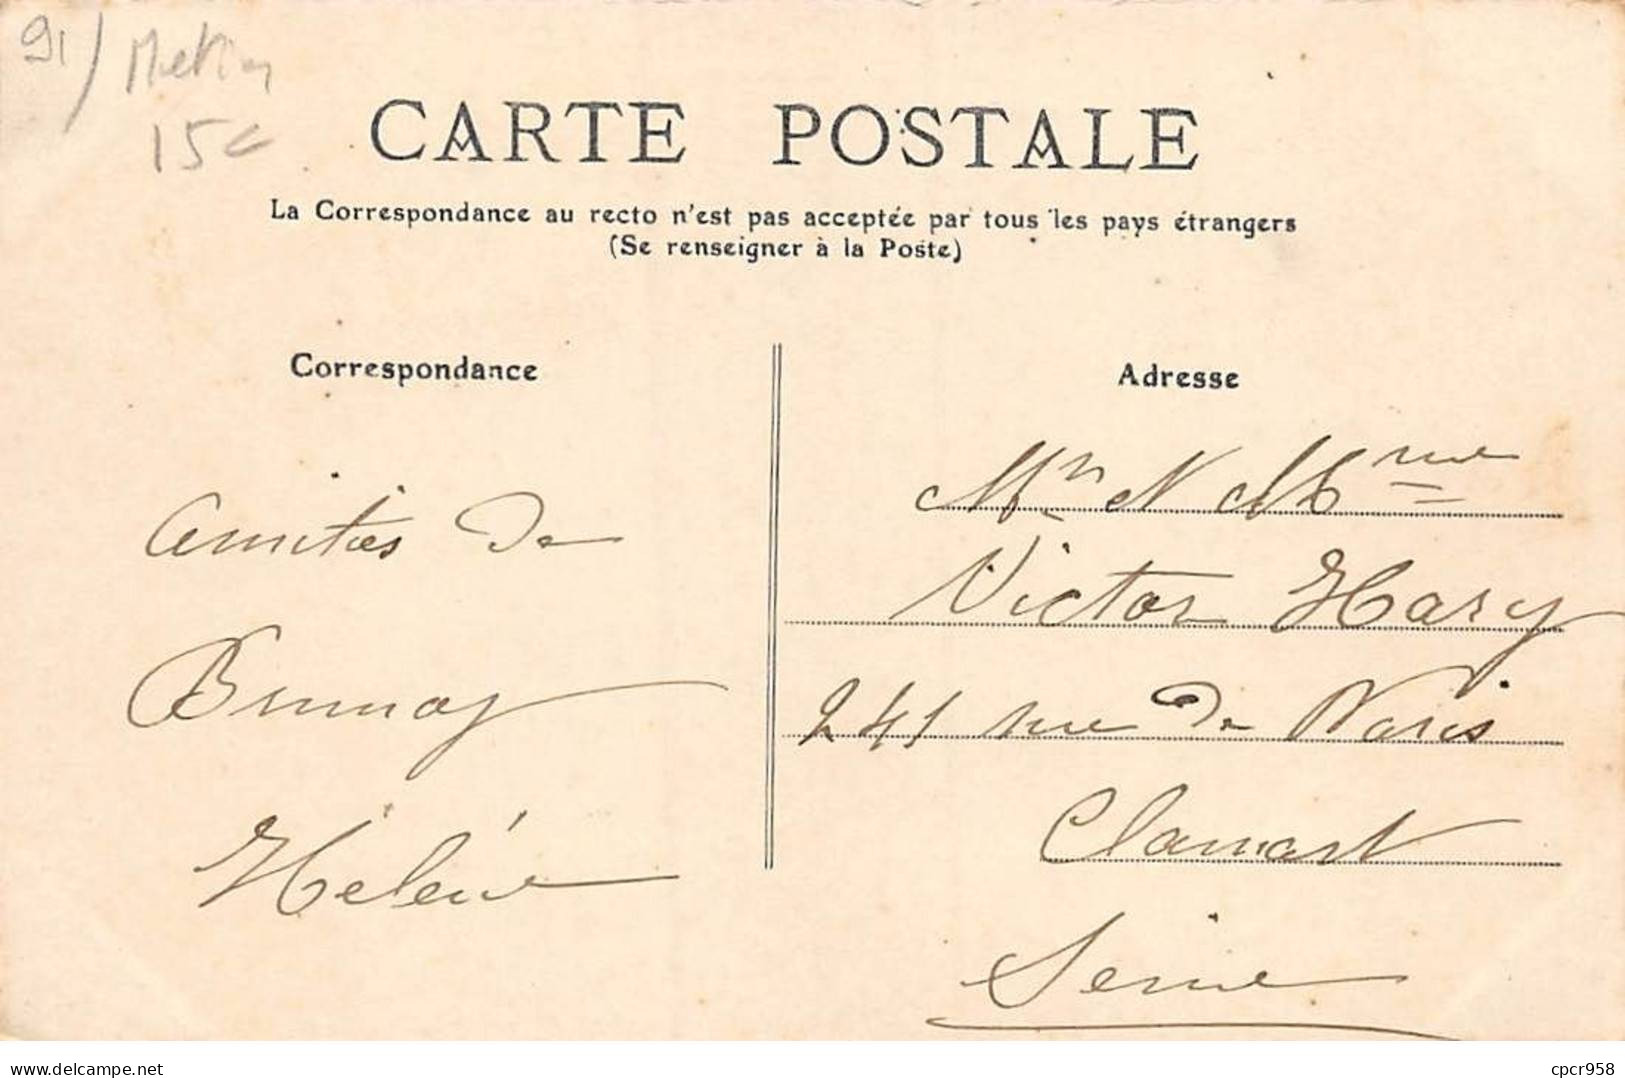 91/
15€
CARTE POSTALE
La Correspondance au recto n'est pas acceptée par tous les pays étrangers
(Se renseigner à la Poste)
Correspondance
Amitiés de
Brunoy
Hélène
Adresse
Mr & Mme
Victor Hary
241 rue de Paris
Clamart
Seine
delcampe.net
cpcr958